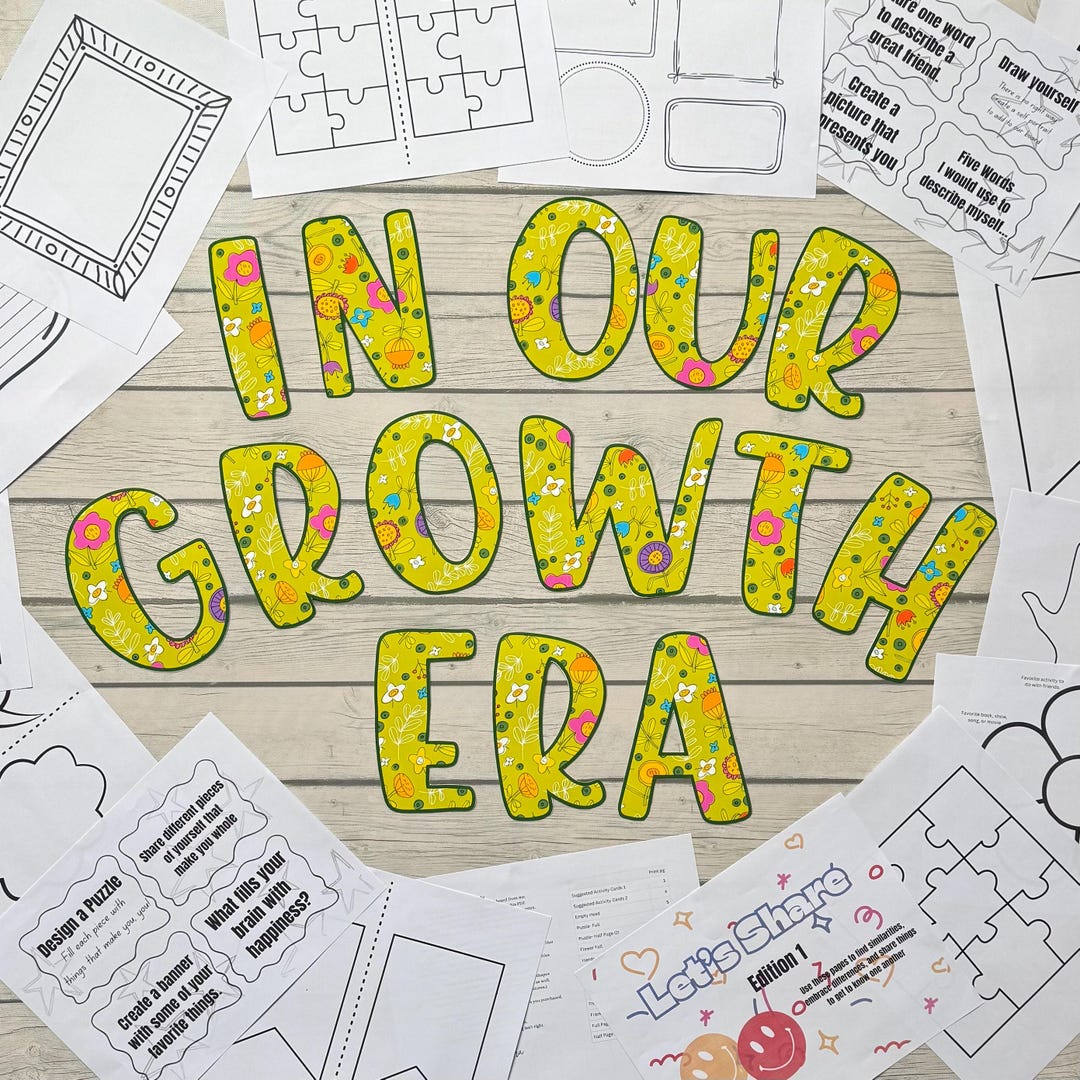 are one word
to describe a
great friend.
Draw yourself
There is no right way
Create a self portrait
to add to our board
Create a
picture that
presents you
Five Words
I would use to
describe myself...
IN OUR
GROWTH
ERA
Favorite activity to
do with friends.
Favorite book, show,
song, or movie
Share different pieces
of yourself that
make you whole
Design a Puzzle
Fill each piece with
things that make you, you!
What fills your
brain with
happiness?
Create a banner
with some of your
favorite things.
Print pg
Suggested Activity Cards 1
Suggested Activity Cards 2
Empty Head
Puzzle- Full
Puzzle- Half Page (2)
Flower Full
Half Page
Let's Share
Edition 1
Use these pages to find similarities,
embrace differences, and share things
to get to know one another